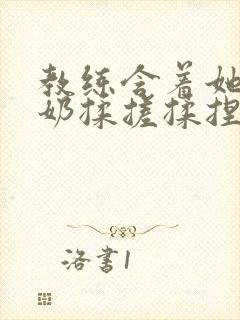 教练含着她
奶揉搓揉捏
洛书1